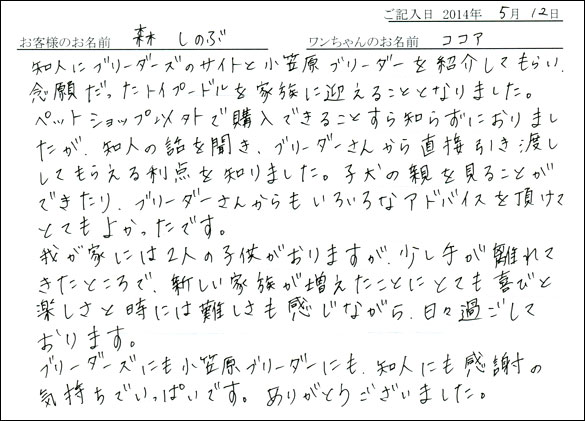 ご記入日 2014年 5月 12日
お客様のお名前 森 しのぶ ワンちゃんのお名前 ココア
知人にブリーダーズのサイトと小笠原ブリーダーを紹介してもらい、
念願だったトイプードルを家族に迎えることとなりました。
ペットショップ以外で購入できることすら知らずにおりまし
たが、知人の話を聞き、ブリーダーさんから直接引き渡し
してもらえる利点を知りました。子犬の親を見ることが
できたり、ブリーダーさんからもいろいろなアドバイスを頂けて
とてもよかったです。
我が家には2人の子供がおりますが、少し手が離れて
きたところで、新しい家族が増えたことにとても喜びと
楽しさと時には難しさも感じながら、日々過ごして
おります。
ブリーダーズにも小笠原ブリーダーにも、知人にも感謝の
気持ちでいっぱいです。ありがとうございました。